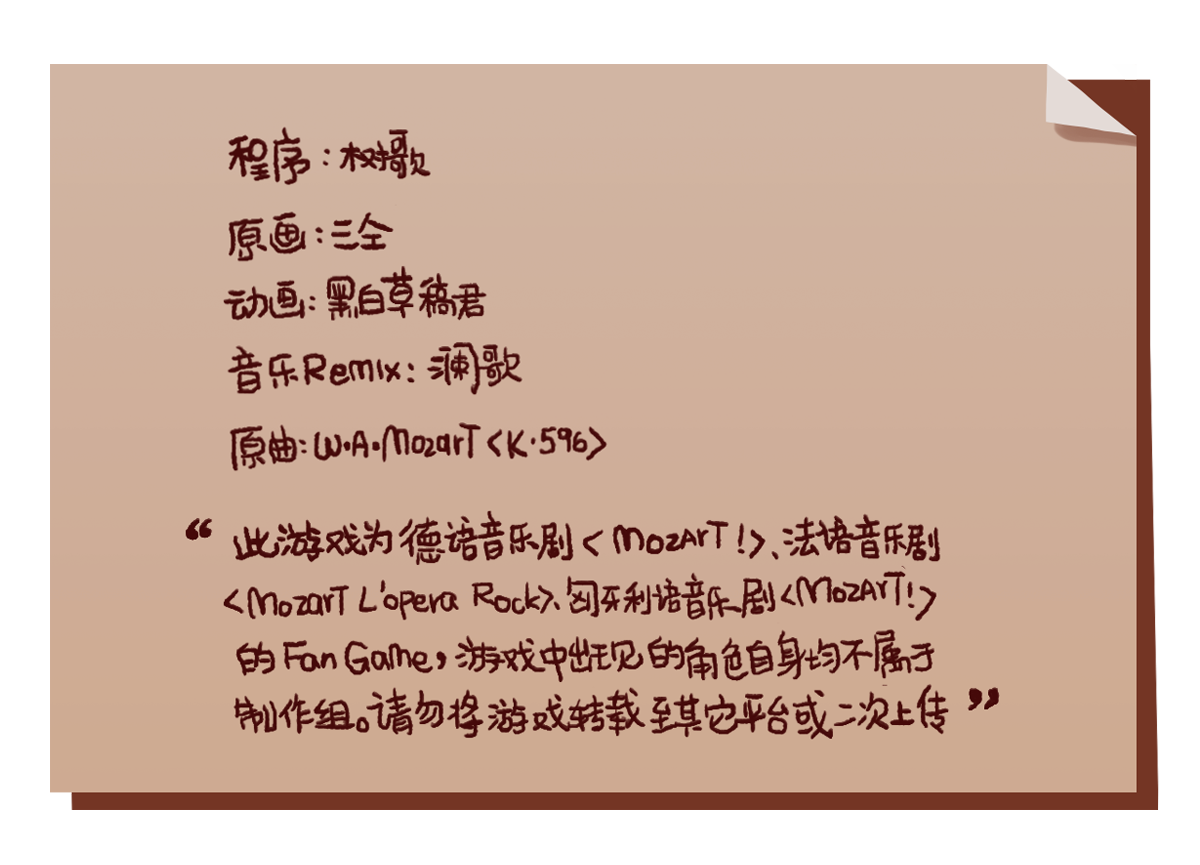 程序：树歌
原画：三仝
动画：黑白草稿君
音乐Remix：澜歌
原曲：W·A·Mozart<K·596>
“此游戏为德语音乐剧<Mozart!>、法语音乐剧
<Mozart L'opera Rock>、匈牙利语音乐剧<Mozart!>
的Fan Game，游戏中出现的角色自身均不属于
制作组。请勿将游戏转载至其它平台或二次上传”